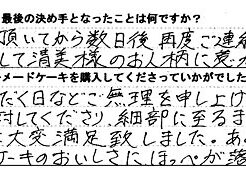 最後の決め手となったことは何ですか？
頂いてから数日後再度ご連
して清美様のお人柄に惹か
メードケーキを購入してくださっていかがでした
だく日などご無理を申し上げ
対してくださり、細部に至るま
大変満足致しました。あ
ーキのおいしさにほっぺが落